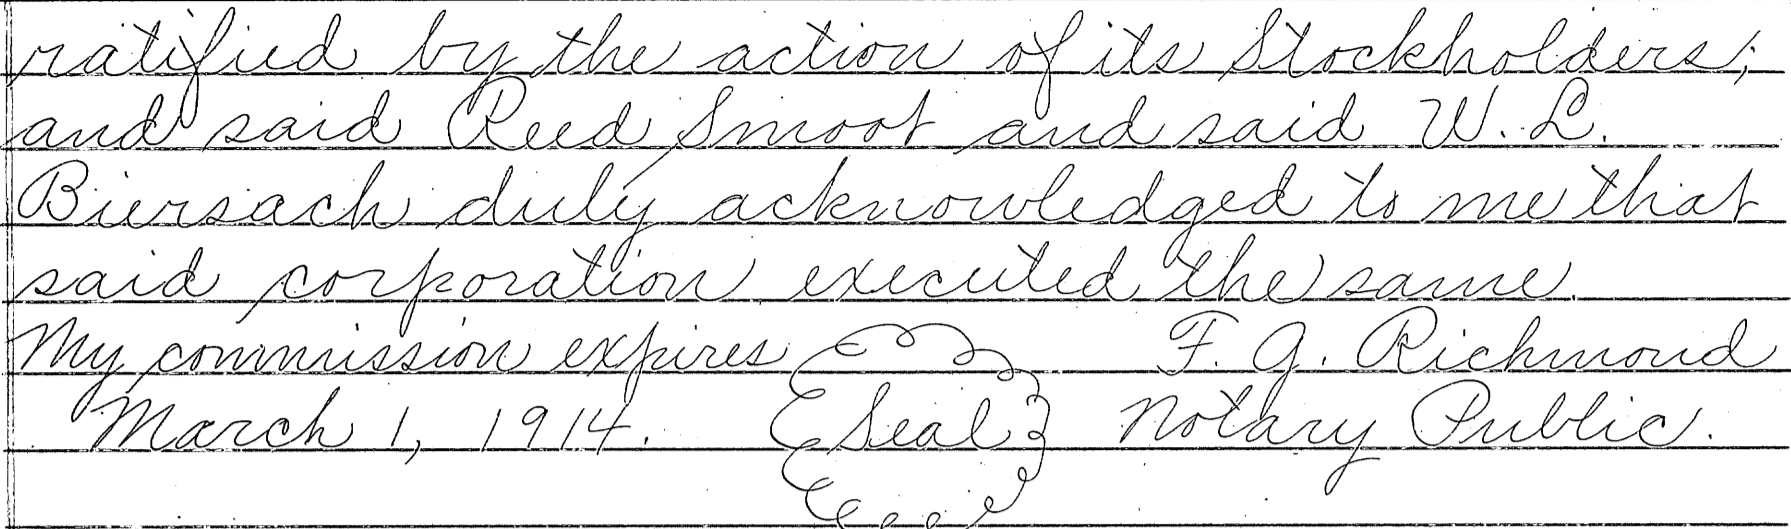 ratified by the action of its Stockholders;
and said Reed Smoot and said W. L.
Biersach duly acknowledged to me that
said corporation executed the same.
My commission expires F. G. Richmond
March 1, 1914. Seal Notary Public.